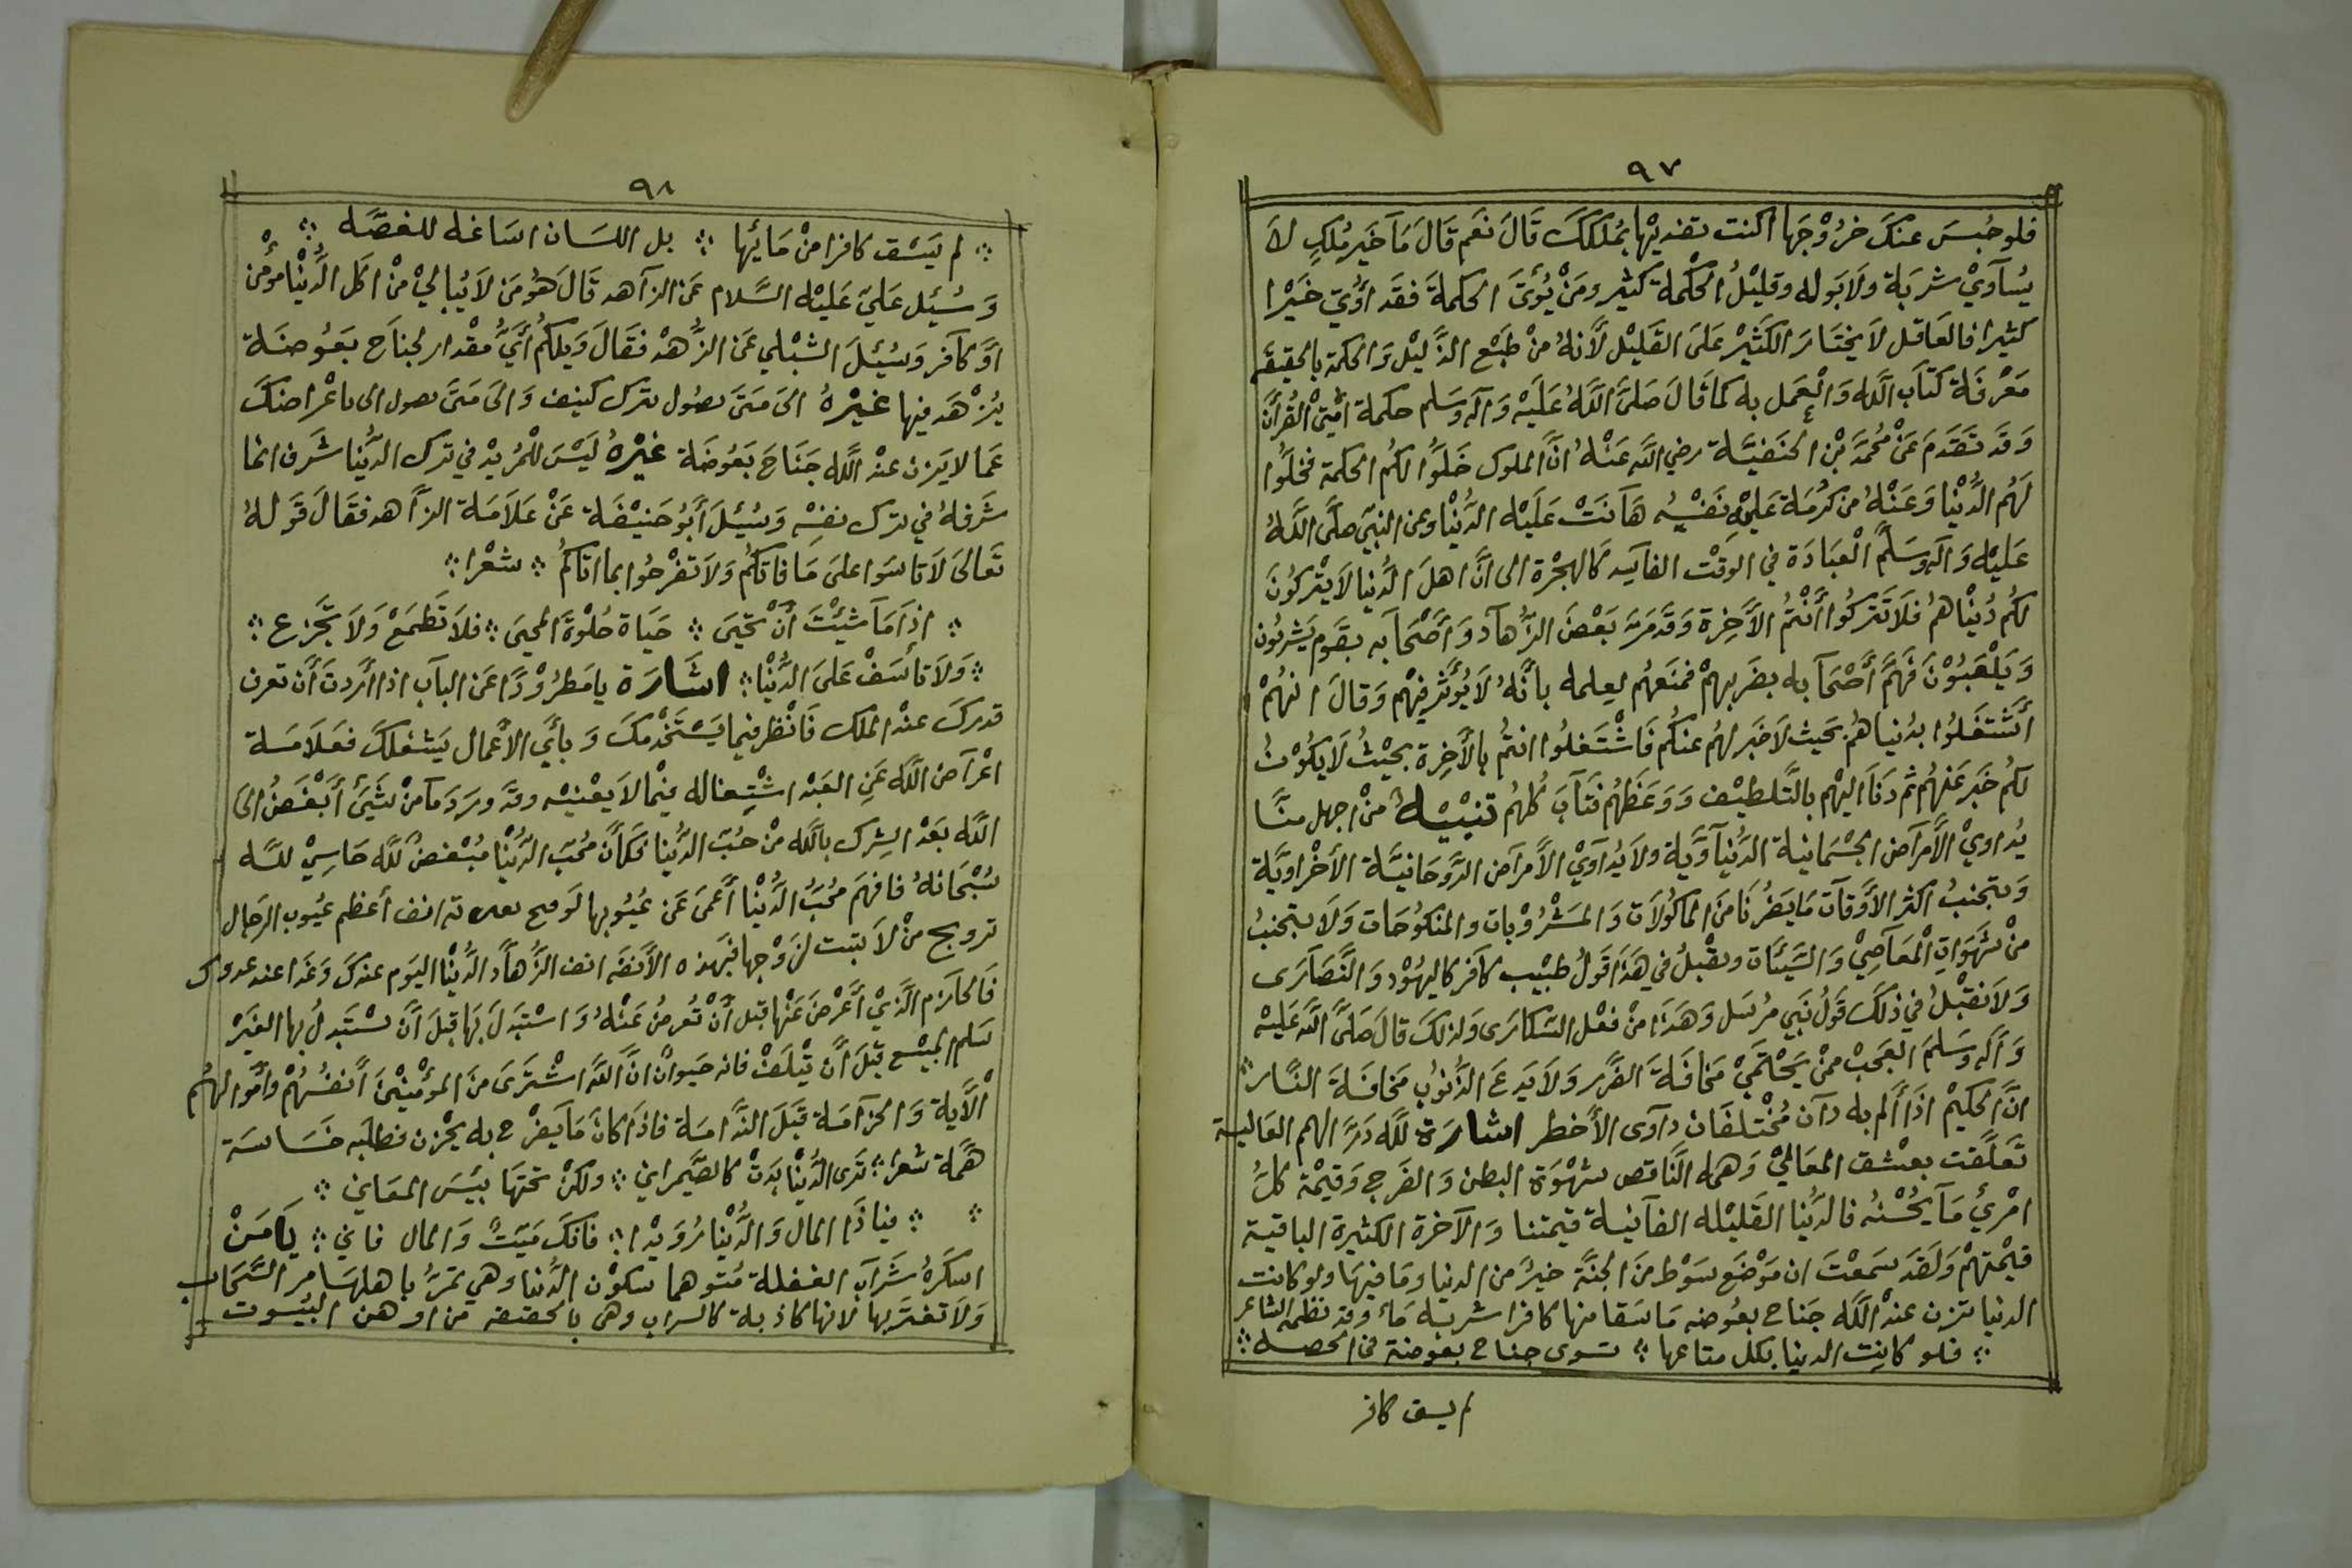 ٩٧
فلو حُبسَ عنكَ خرُوْجَها اكنت تفديْها بمُلككَ قَالَ نعَم قَالَ مَا خَير مُلكٍ لاَ
يُسآويْ شربَة ولاَ بَوله وقليْلُ الحْكْمة كثير ومَنْ يُؤتَ الحكمةَ فقد أوُتيَ خَيْرا
كثيرا فالعَاقل لاَ يختَارَ الكَثيْر عَلىَ القَليْل لأَنهُ منْ طَبْع الذَّليْل وَالحكمة بالحقيقَه
مَعْرفَة كتَاَب اللَّه وَالْعَمل به كما قالَ صَلىَّ اللَّهُ عَلَيْه وَآله وَسَلم حكمة اُمَّتيْ القُرأنَ
وَقَد تَقَدمَ عَنْ مُحمَّد بْن الحنَفيَّة رضي اللَّه عَنْهُ انَّ الملوك خَلَّوُا لكُم الحكمة فخلَّوُا
لَهُم الدُّنْيَا وَعَنْهُ من كرُمَة عَليْه نَفسْهُ هَآنَتْ عَلَيْه الدُّنْيا وعن النبيّ صلَّى اللَّهُ
عَليْه وَآله وسَلَّم الْعبَادَة في الوَقْت الفآيه كَالهجْرة الى انَّ اهلَ الدُّنيا لاَ يتْركوُنَ
لكُم دُنيْاهُم فلاَ تَتركُوا أنْتُم الأَخِرة وَقَد مَرَّ بَعْضَ الزُّهآد وَأصْحَابه بقَوم يَشربُون
وَيَلْعَبُوْنَ فَهَمَّ أصْحَآبه بضَربهمْ فمنَعَهُم لعلمه بأنَّهُ لاَ يُؤَثّر فيهْم وَقالَ انهُمْ
أَشتغَلوُا بدُنياهُمْ بحَيث لاَ خَبر لهُم عنكُم فَاشْتَغلوُا انتُم بالأَخِرة بحيْثُ لاَ يكُوْنُ
لكُم خَبر عَنهُم ثم دَنَا اليْهم بالتَّلطيْف وَوعَظَهُم فتَآبَ كُلهُم تنبْيْهٌ منْ اجهل منَّا
يُداويْ الأمرآض الجْسْمَانية الدُّنيآوَّية ولاَ يُدآويْ الأَمرآض الرَّوحَانيَّة الأخْراويَّة
وَيتجنبُ اكثر الأَوقآت مَا يَضرُنَا منَ الماكوُلاَت وَالمشْرُوْبات والمنكوُحَات وَلاَ يتجنبُ
منْ شَهوَات الْمعَآصِيْ وَالسَّيئَات ونقْبلُ في هَذَا قَولُ طبيْب كاَفر كاليهُوْد وَالنَّصَآرَى
وَلاَ نقبْلُ في ذلكَ قَولُ نَبي مرُسَل وَهَذا منْ فعْل السّكاَرى ولذلكَ قالَ صَلىَّ اللَّه عَليْه
وَآله وسَلمَ العَجَبْ ممْنْ يَحْتَميْ مَخاَفَةَ الضَّرر وَلاَ يَدعَ الذُّنوُب مَخاَفَة النَّار
انَّ الحكيْم اذَا ألم به دآن مُخْتلفَان دآوى الأَخطر اشارَة للَّه دَرَّ الهم العَالية
تَعلَّقت بعشْق المعَاليْ وَهمة النَّاقص شهْوَة البطن وَالفَرج وَقيْمَة كلُّ
امْرئٍ مَآ يحُسْنهُ فالدُّنيا القَليْلة الفآنية قيمتنا وَالآخرة الكثيرة الباقية
قيمْتهمْ وَلقدَ سَمعْتَ ان مَوْضعَ سَوْط منَ الجنَّة خيرٌ من الدنيا ومَا فيهَا ولو كانت
الدنيا تزن عندْ اللَّه جَناح بعُوضه مَا سَقا منها كافرا شربة مَاء وقد نظمه الشاعر
فلو كانت الدنيا بكل متاعها تسوى جناح بعوضة في الحصه
لم يسق كافر
٩٨
لم يَسْق كافرا منْ مَايُها بل اللسَان اسَاغه للغصَّه
وَسُئِل عَليّ عَليْه السَّلام عَن الزآهد قَالَ هَوُ مَن لاَ يُباليْ منْ اكَل الدُّنْيَا مؤْمن
اوَّ كآفر وَسُئِلَ الشبْلي عَن الزُّهْد فقَالَ وَيلكُم أيَُّ مقْدار لجنَاَح بعَوُضَة
يزْهَد فيها غيْرهُ الىَ مَتىَ تصُول بترك كنيف وَالىَ مَتىَ تصول الى باعْراضكَ
عَما لاَ يَزن عنْد اللَّه جَنَاحَ بَعوُضَة غيْرهُ ليَسَْ للمُريْد في ترك الدُّنيا شَرف انما
شَرفهُ في ترك نفسْهِ وَسُئِلَ أبَوُ حَنيْفَة عَنْ عَلاَمَة الزآهد فقَالَ قَولهُ
تَعالىَ لاَ تاسَوا علىَ مَا فاتكُم وَلاَ تفرْحوُا بما اتاكُم شعْرا
اذَا مَا شئْتَ أنْ تحَيَى حيَاة حُلوْةَ المحيَى فلاَ تَطمَعْ وَلاَ تَجْزع
وَلاَ تَأسَفْ عَلىَ الدُّنْيَا اشَارَة يا مَطرُوْدًا عَن البآب اذا أردتَ أن تعرف
قدركَ عندْ الملك فَانْظر فيما يَسْتَخْدمكَ وَبأيَ الأعْمال يَشغلكَ فعَلاَمَة
اعْرآض اللَّه عَن العَبْد اشْتغاله فيْما لاَ يعْنيْه وقَد وَردَ مآ منْ شيْئَ أبْغَضُ الىَ
اللَّه بَعدْ الشِرك باللَّه منْ حُبّ الدُّنيا فكاَنَّ مُحبّ الدُّنْيَا مُبغضُ للَّه حَاسِيْ للَّه
سُبْحَانهُ فافهمَ مُحبُ الدُّنْيا أعَمىَ عَن عيُوُبها لَو أنف أعظم عيُوب الرجَال
ترويج منْ لاَ يثبت لزَوْجها فبَهذه الأَنفَه انف الزُّهآد الدُّنْيا اليَوم عندكَ وَغَدا عند عدوك
فَالحآزم الَّذيْ أعَْرضَ عَنْها قبل أنْ تُعرضُ عَنْهُ وَاستْبَدلَ بَهَا قبَلَ أنَ تسْتَبدلُ بها الغَيْر
سَلم المبيْع قبَلَ أنَ يتْلَفْ فانه حَيوانٌ انَّ اللَّهَ اشتَْرىَ منَ المؤْمنيْنَ أنَفُسَهُمْ وَأمَوَالهُم
الْأَية وَالحزآمَة قبَلَ النَّدامَة فاذَا كانَ مَا يَفرْح به يحْزن فطلبَه خسَاسَة
همَّة شعرا تَرى الدُّنيْا بَدتْ كالصَّيمراني ولكنْ تحتهَا بئسَ المعَاني
فياذَا المال وَالدُّنْيا رُوَيْدا فانكَ مَيّتٌ وَالمال فاني يَامَنْ
اسكَرهُ شَرآب الغفلة مُتوهما سكوُن الدُّنيا وهي تَمرُّ باهلهَا مر السَّحَاب
وَلاَ تغتَر بها لانها كاذبة كالسراب وهى بالحقيقه من اوهن البيُوت